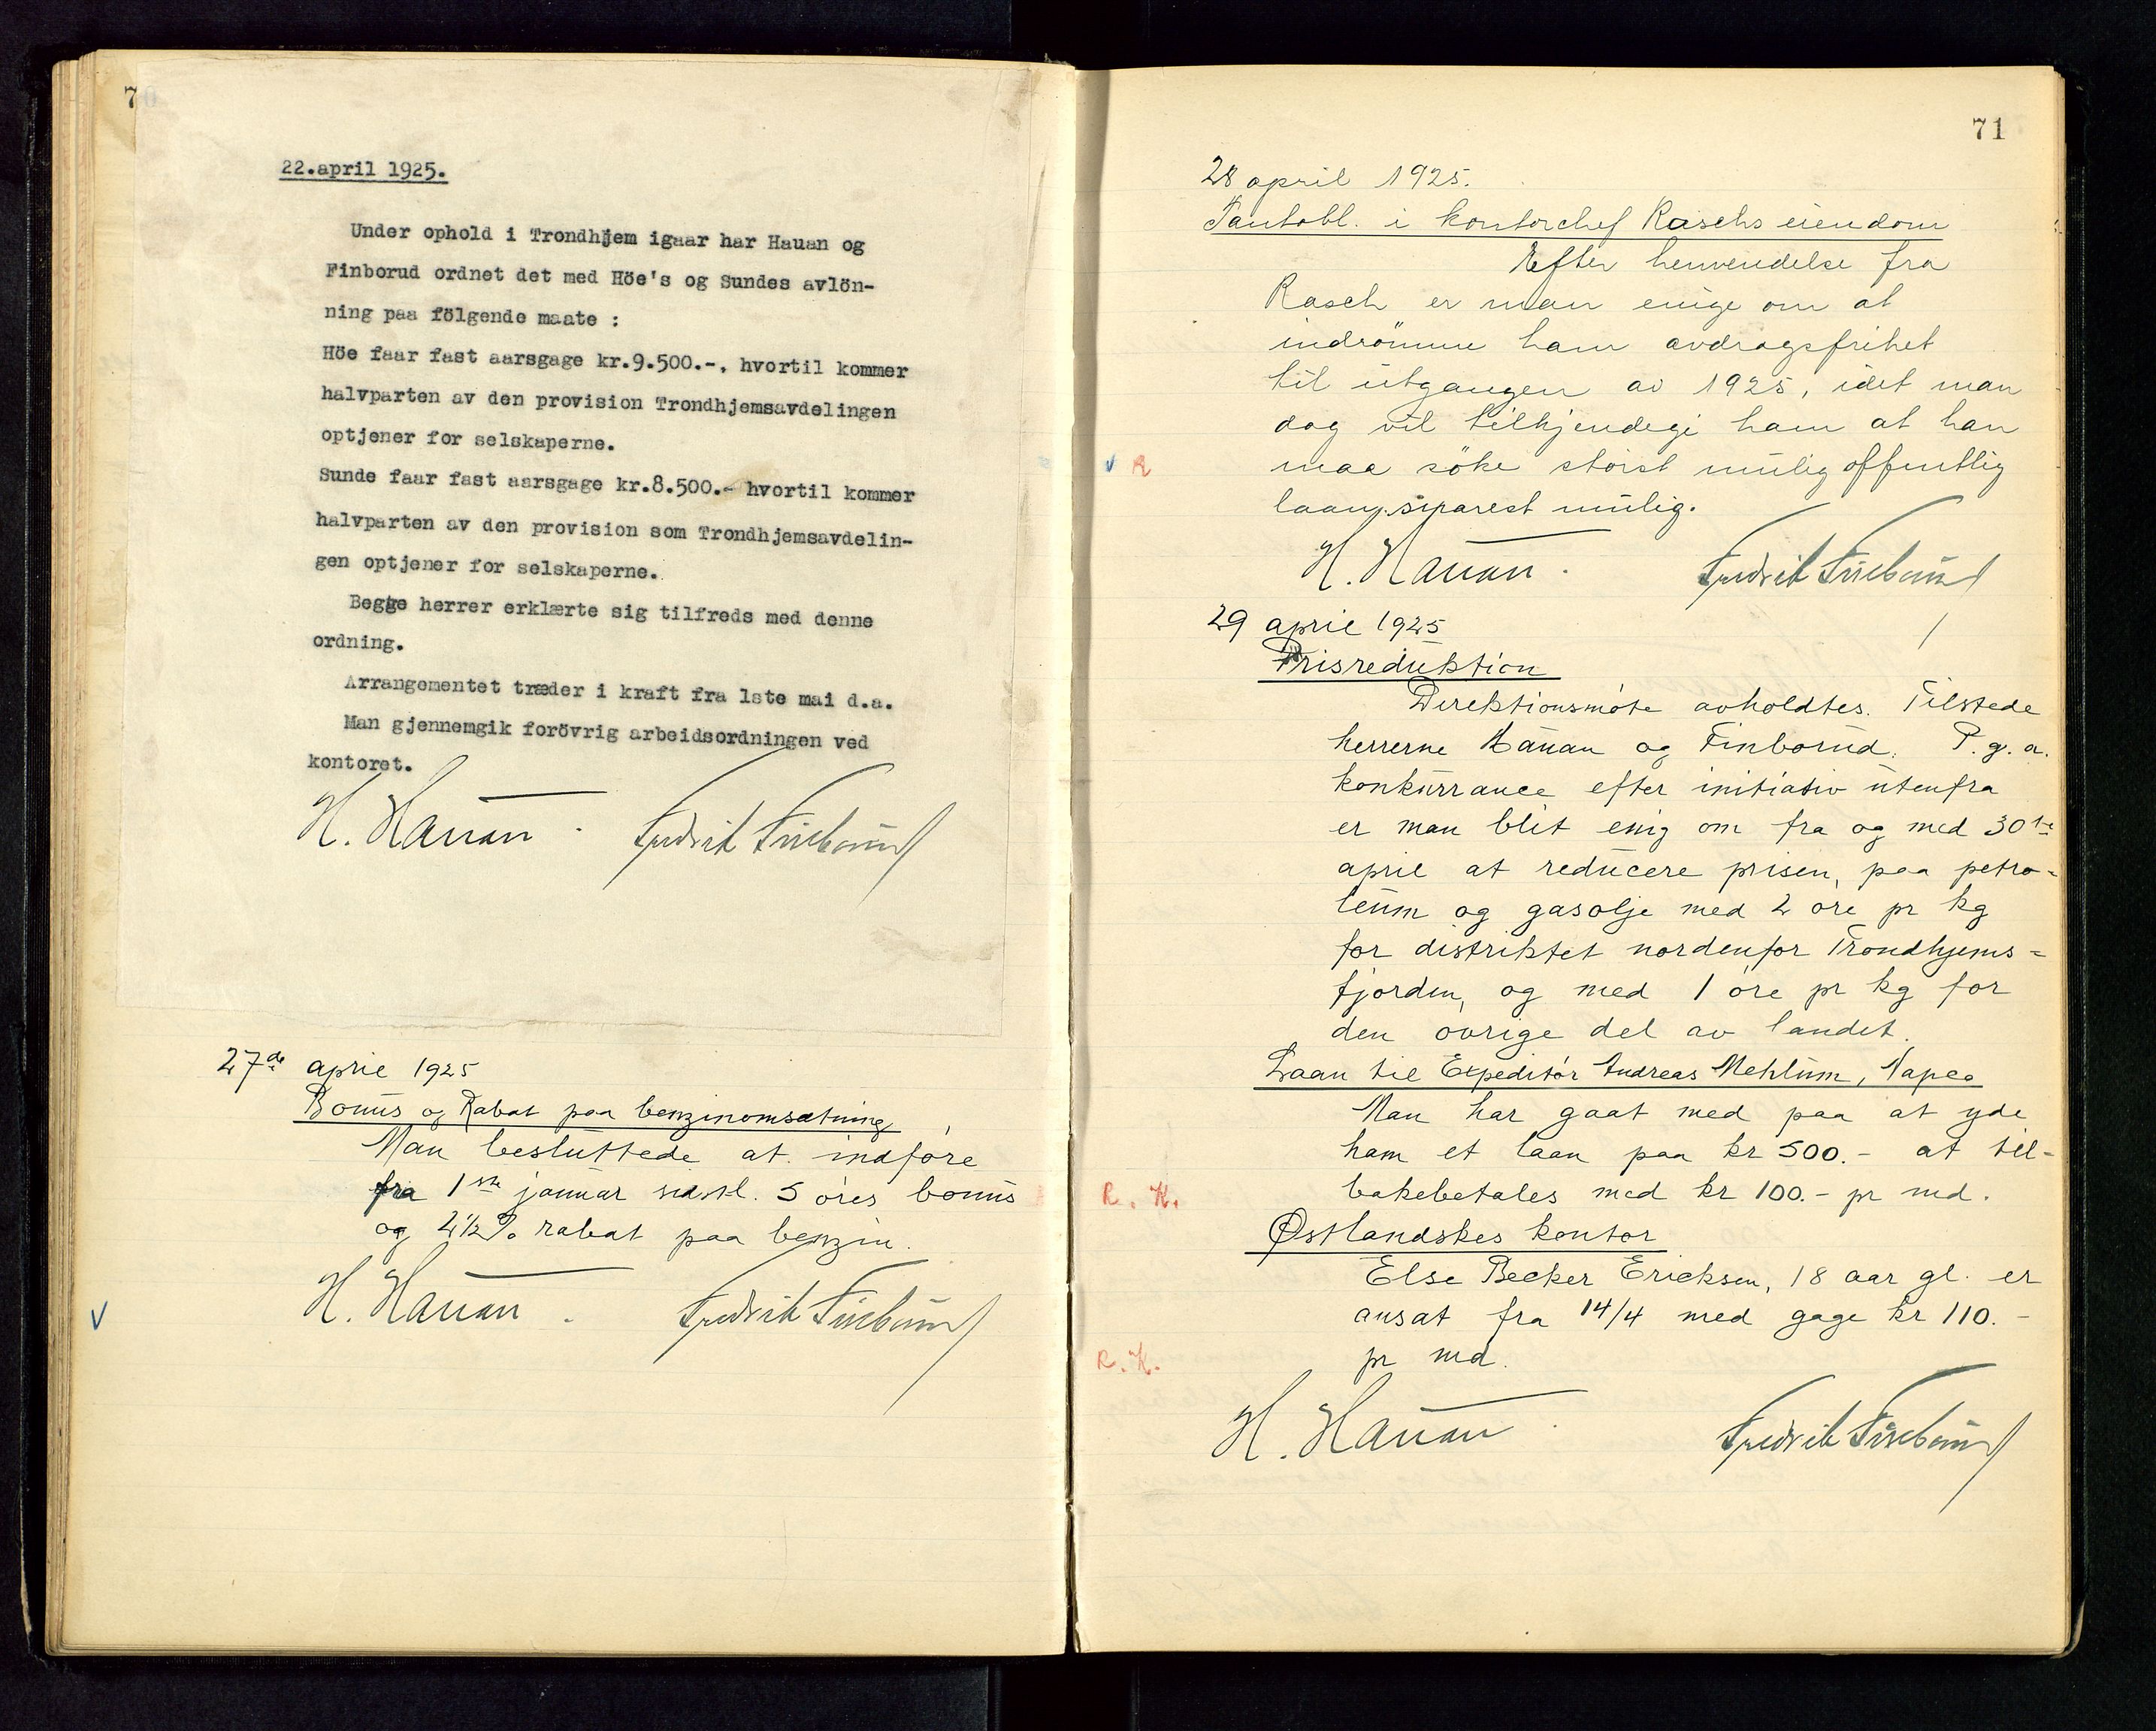 70
22.april 1925.
Under ophold i Trondhjem igaar har Hauan og
Finborud ordnet det med Höe's og Sundes avlön-
ning paa fölgende maate :
Höe faar fast aarsgage kr.9.500.-, hvortil kommer
halvparten av den provision Trondhjemsavdelingen
optjener for selskaperne.
Sunde faar fast aarsgage kr.8.500.- hvortil kommer
halvparten av den provision som Trondhjemsavdelin-
gen optjener for selskaperne.
Begge herrer erklærte sig tilfreds med denne
ordning.
Arrangementet træder i kraft fra 1ste mai d.a.
Man gjennemgik forövrig arbeidsordningen ved
kontoret.
H. Hauan. Fredrik Finborud
27de april 1925
Bonus og Rabat paa benzinomsætning
Man besluttede at indføre
fra 1ste januar sidstl. 5 øres bonus
og 2 1/2 % rabat paa benzin.
H. Hauan. Fredrik Finborud
71
28 april 1925.
Pantobl. i kontorchef Raschs eiendom
Efter henvendelse fra
Rasch er man enige om at
indrömme ham avdragsfrihet
til utgangen av 1925, idet man
dog vil tilkjendegi ham at han
V R
maa söke störst mulig offentlig
laan snarest mulig.
H. Hauan. Fredrik Finborud
29 april 1925
Prisreduktion
Direktionsmøte avholdtes. Tilstede
herrerne Hauan og Finborud. P.g.a.
konkurrance efter initiativ utenfra
er man blit enig om fra og med 30te
april at reducere prisen, paa petro-
leum og gasolje med 2 øre pr kg
for distriktet nordenfor Trondhjems-
fjorden, og med 1 øre pr kg for
den øvrige del av landet.
Laan til Expeditør Andreas Mehlum, Vapco
Man har gaat med paa at yde
ham et laan paa kr 500.- at til-
R. K.
bakebetales med kr 100.- pr md.
Østlandskes kontor
Else Becker Ericksen, 18 aar gl. er
ansat fra 14/4 med gage kr 110.-
R. K.
pr md.
H. Hauan. Fredrik Finborud